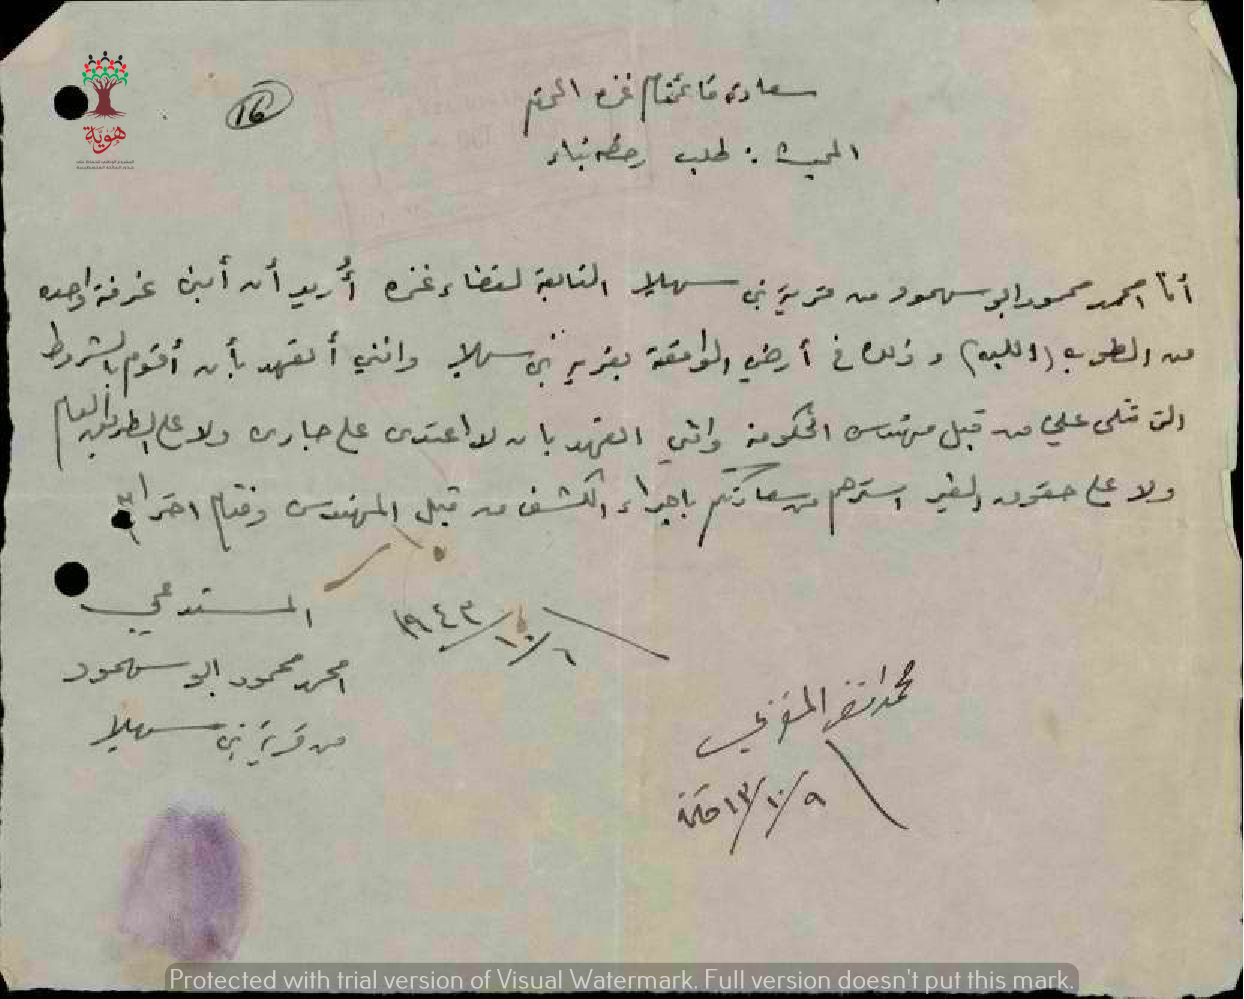 سعادة قائمقام غزه المحترم
16
المبحث : طلب رخصة بناء
أنا احمد محمود ابو سمهود من قرية بني سهيلا التابعة لقضاء غزه أُريد أن أبني غرفة واحده
من الطوب (اللبن) وذلك في أرضي الواقعة بقرية بني سهيلا وانني أتعهد بأن أقوم بالشروط
التي تملى علي من قبل مهندس الحكومة وانني اتعهد بان لا اعتدى على جارى ولا على الطريق العام
ولا على حقوق الغير استرحم من سعادتكم باجراء الكشف من قبل المهندس وختام احترامي
المستدعي
٦/١٠/١٩٤٣
احمد محمود ابو سمهود
من قرية بني سهيلا
محمد المغربي
٩/١٠/٤٣
هوية
Protected with trial version of Visual Watermark. Full version doesn't put this mark.